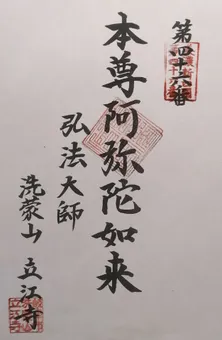 第四十六番
本尊阿弥陀如来
弘法大師
洗蒙山 立江寺